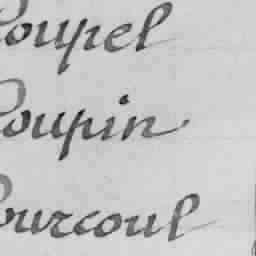 Coupel
Coupin
Courcoul